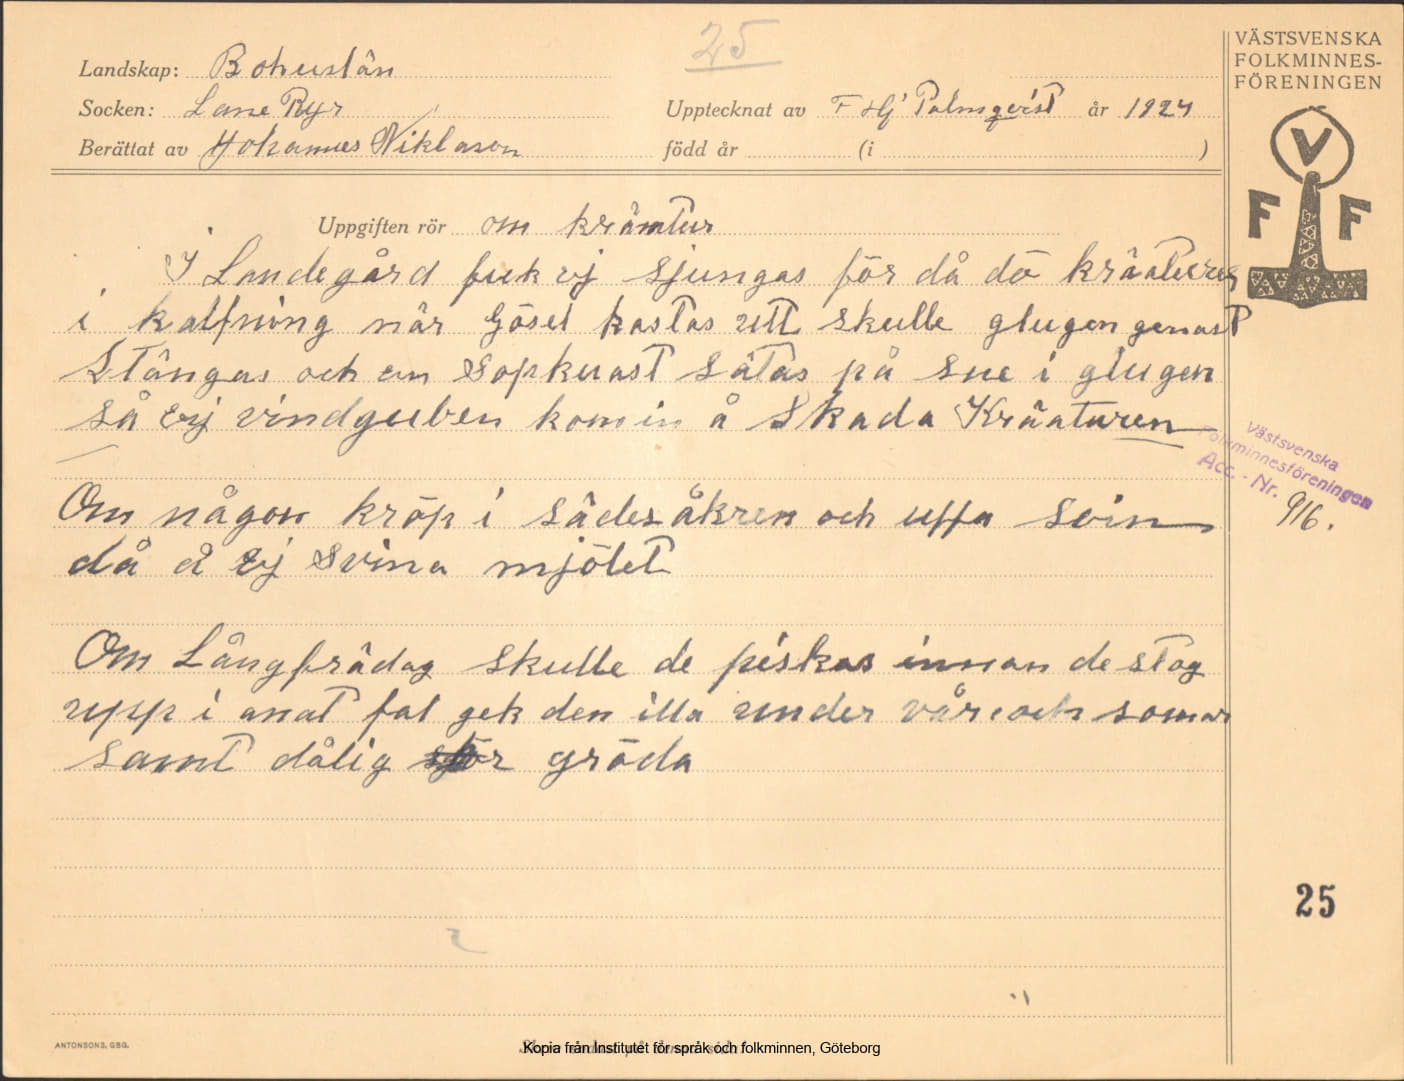 25
VÄSTSVENSKA
FOLKMINNES-
FÖRENINGEN
Landskap: Bohuslän
Socken: Lane Ryr
Upptecknat av F Hj Palmqvist år 1924
Berättat av Johannes Niklason
född år (i )
V
F F
Uppgiften rör om kräatur
I Landegård fick ej sjungas för då dö kräaturen
i kalfning när Gösel kastas utt skulle glugen genast
Stängas och en Sopkvast sätas på sne i glugen
så Ej vindguben kom in å Skada Kräaturen
Västsvenska
Folkminnesföreningen
Acc. - Nr. 916.
Om någon kröp i sädesåkren och uppa svin
då å Ej Svina mjölet
Om Långfrädag skulle de piskas innan de stog
upp i anat fal gek den illa under vår och somar
samt dålig gröda
25
ANTONSONS, GBG.
Kopia från Institutet för språk och folkminnen, Göteborg